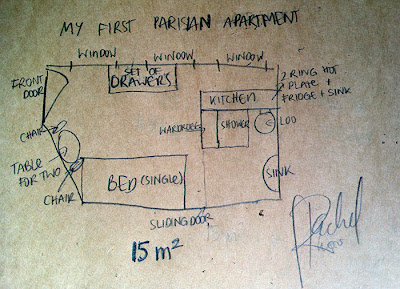 MY FIRST PARISIAN APARTMENT
WINDOW
WINDOW
WINDOW
FRONT
DOOR
SET OF
DRAWERS
2 RING HOT
PLATE +
FRIDGE + SINK
KITCHEN
CHAIR
WARDROBE
SHOWER
LOO
TABLE
FOR TWO
CHAIR
BED (SINGLE)
SINK
SLIDING DOOR
15 m²
15 m
Rachel